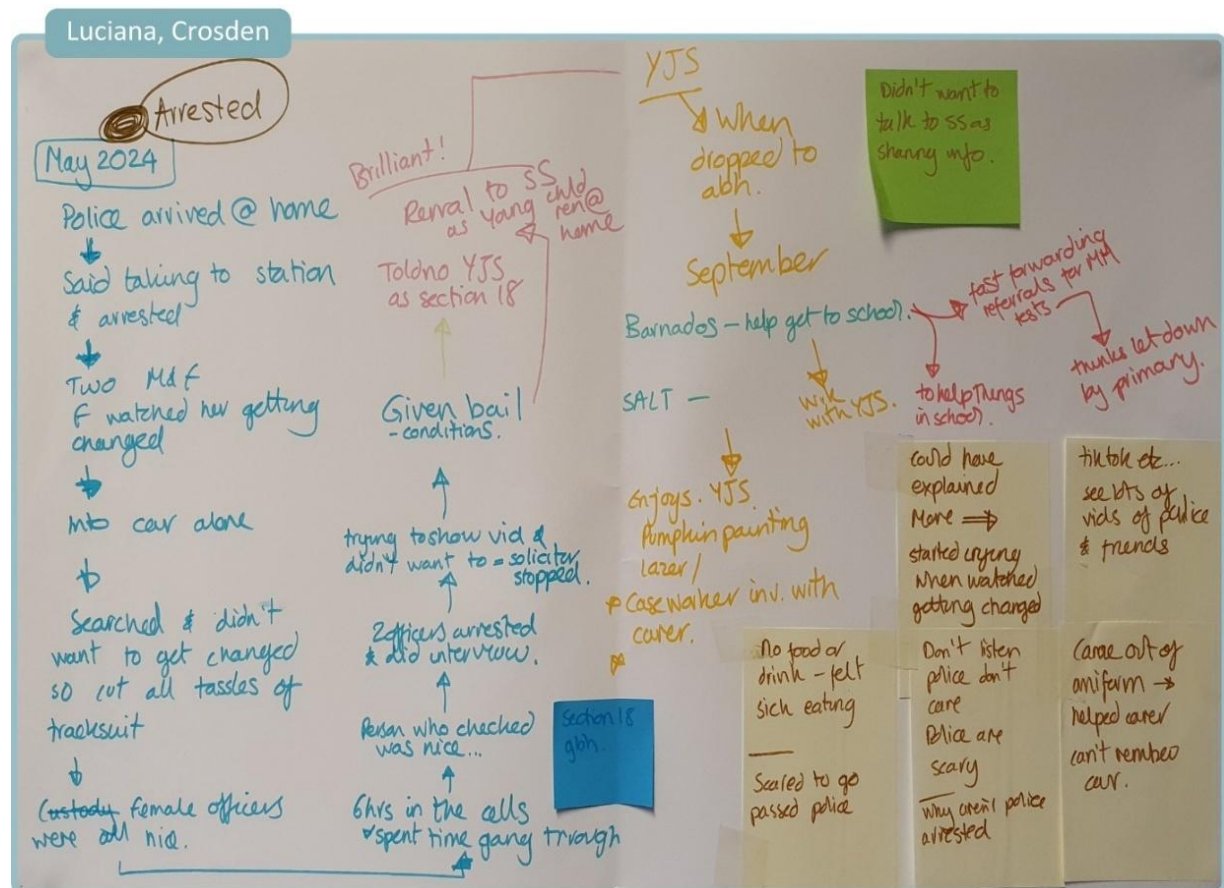 Luciana, Crosden
Arrested
May 2024
Police arrived @ home
Said taking to station
& arrested
Two M & F
F watched her getting
changed
Into car alone
Searched & didn't
want to get changed
so cut all tassles of
tracksuit
Custody female officers
were all nice.
6hrs in the cells
spent time gang trough
Person who checked
was nice...
2 officers arrested
& did interview.
trying to show vid &
didn't want to = solicitor
stopped.
Given bail
- conditions.
Told no YJS
as section 18
Brilliant!
to SS
as yang child
ren@
home
YJS
When
dropped to
abh.
September
Barnados - help get to school.
SALT -
with YJS.
fast forwarding
referrals for MH
tests
thinks let down
by primary.
to help things
in school.
Enjoys. YJS.
Pumpkin painting
lazer/
Caseworker inv. with
carer.
Didn't want to
talk to SS as
sharing info.
Section 18
gbh.
could have
explained
More ⇒
started crying
when watched
getting changed
tiktok etc...
see bts of
vids of police
& friends
No food or
drink - felt
sick eating
Scared to go
passed police
Don't listen
police don't
care
Police are
scary
why aren't police
arrested
Came out of
uniform →
helped carer
can't rembeo
car.